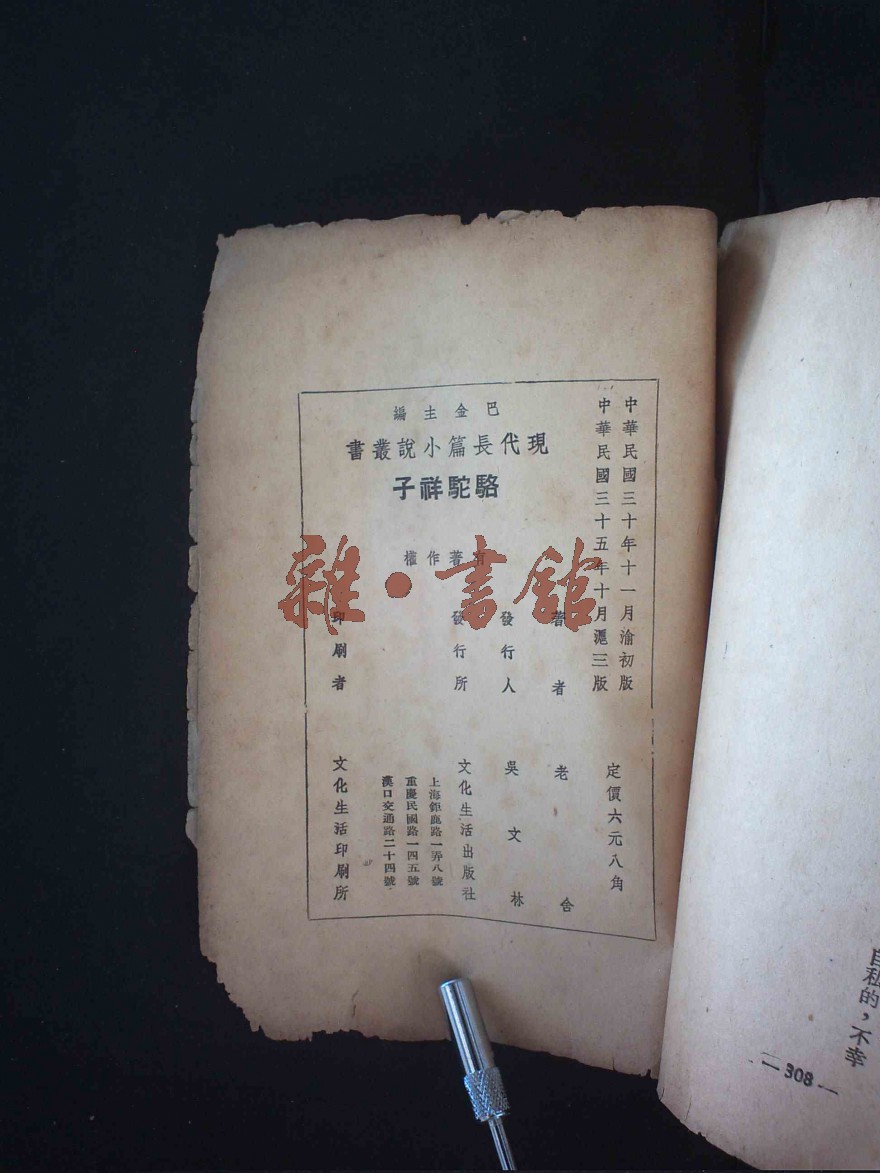 中華民國三十年十一月渝初版
中華民國三十五年十月滬三版
定價六元八角
巴金主編
現代長篇小說叢書
駱駝祥子
有著作權
著者 老舍
發行人 吳文林
發行所 文化生活出版社
上海鉅鹿路一弄八號
重慶民國路一四五號
漢口交通路二十四號
印刷者 文化生活印刷所
雜·書館
自私的，不幸
— 308 —